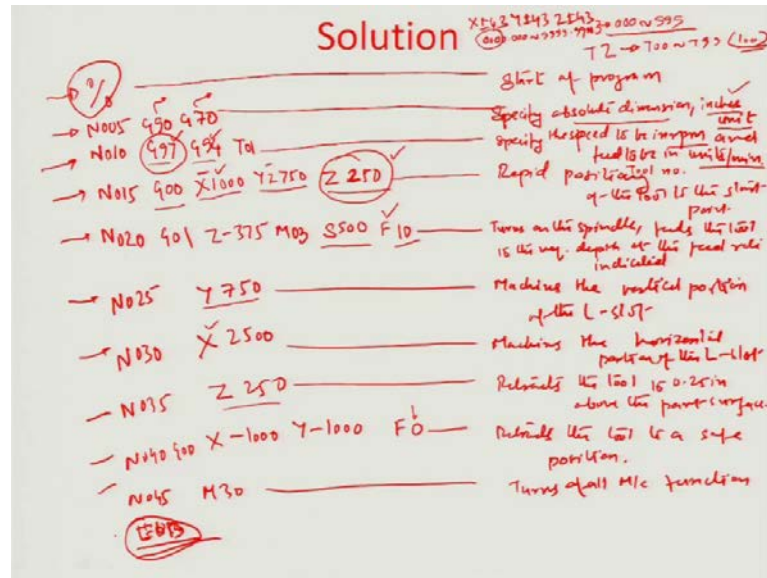 Solution
X±43 Y±43 Z±43
0000.000 ~ 9999.999
000 ~ 995
TZ → 700 ~ 799 (100)
% Start of program
N005 G90 G70 Specify absolute dimension, inches unit
N010 G97 G94 T01 Specify the speed to be in rpm and
feed to be in units/min.
Tool no.
N015 G00 X1000 Y2750 Z250 Rapid positioning
of the tool to the start
point
N020 G01 Z-375 M03 S500 F10 Turns on the spindle, feeds the tool
to the req. depth at the feed rate
indicated
N025 Y750 Machines the vertical portion
of the L-slot
N030 X2500 Machines the horizontal
portion of the L-slot
N035 Z250 Retracts the tool to 0.25in
above the part surface.
N040 G00 X-1000 Y-1000 F0 Retracts the tool to a safe
position.
N045 M30 Turns of all M/c function